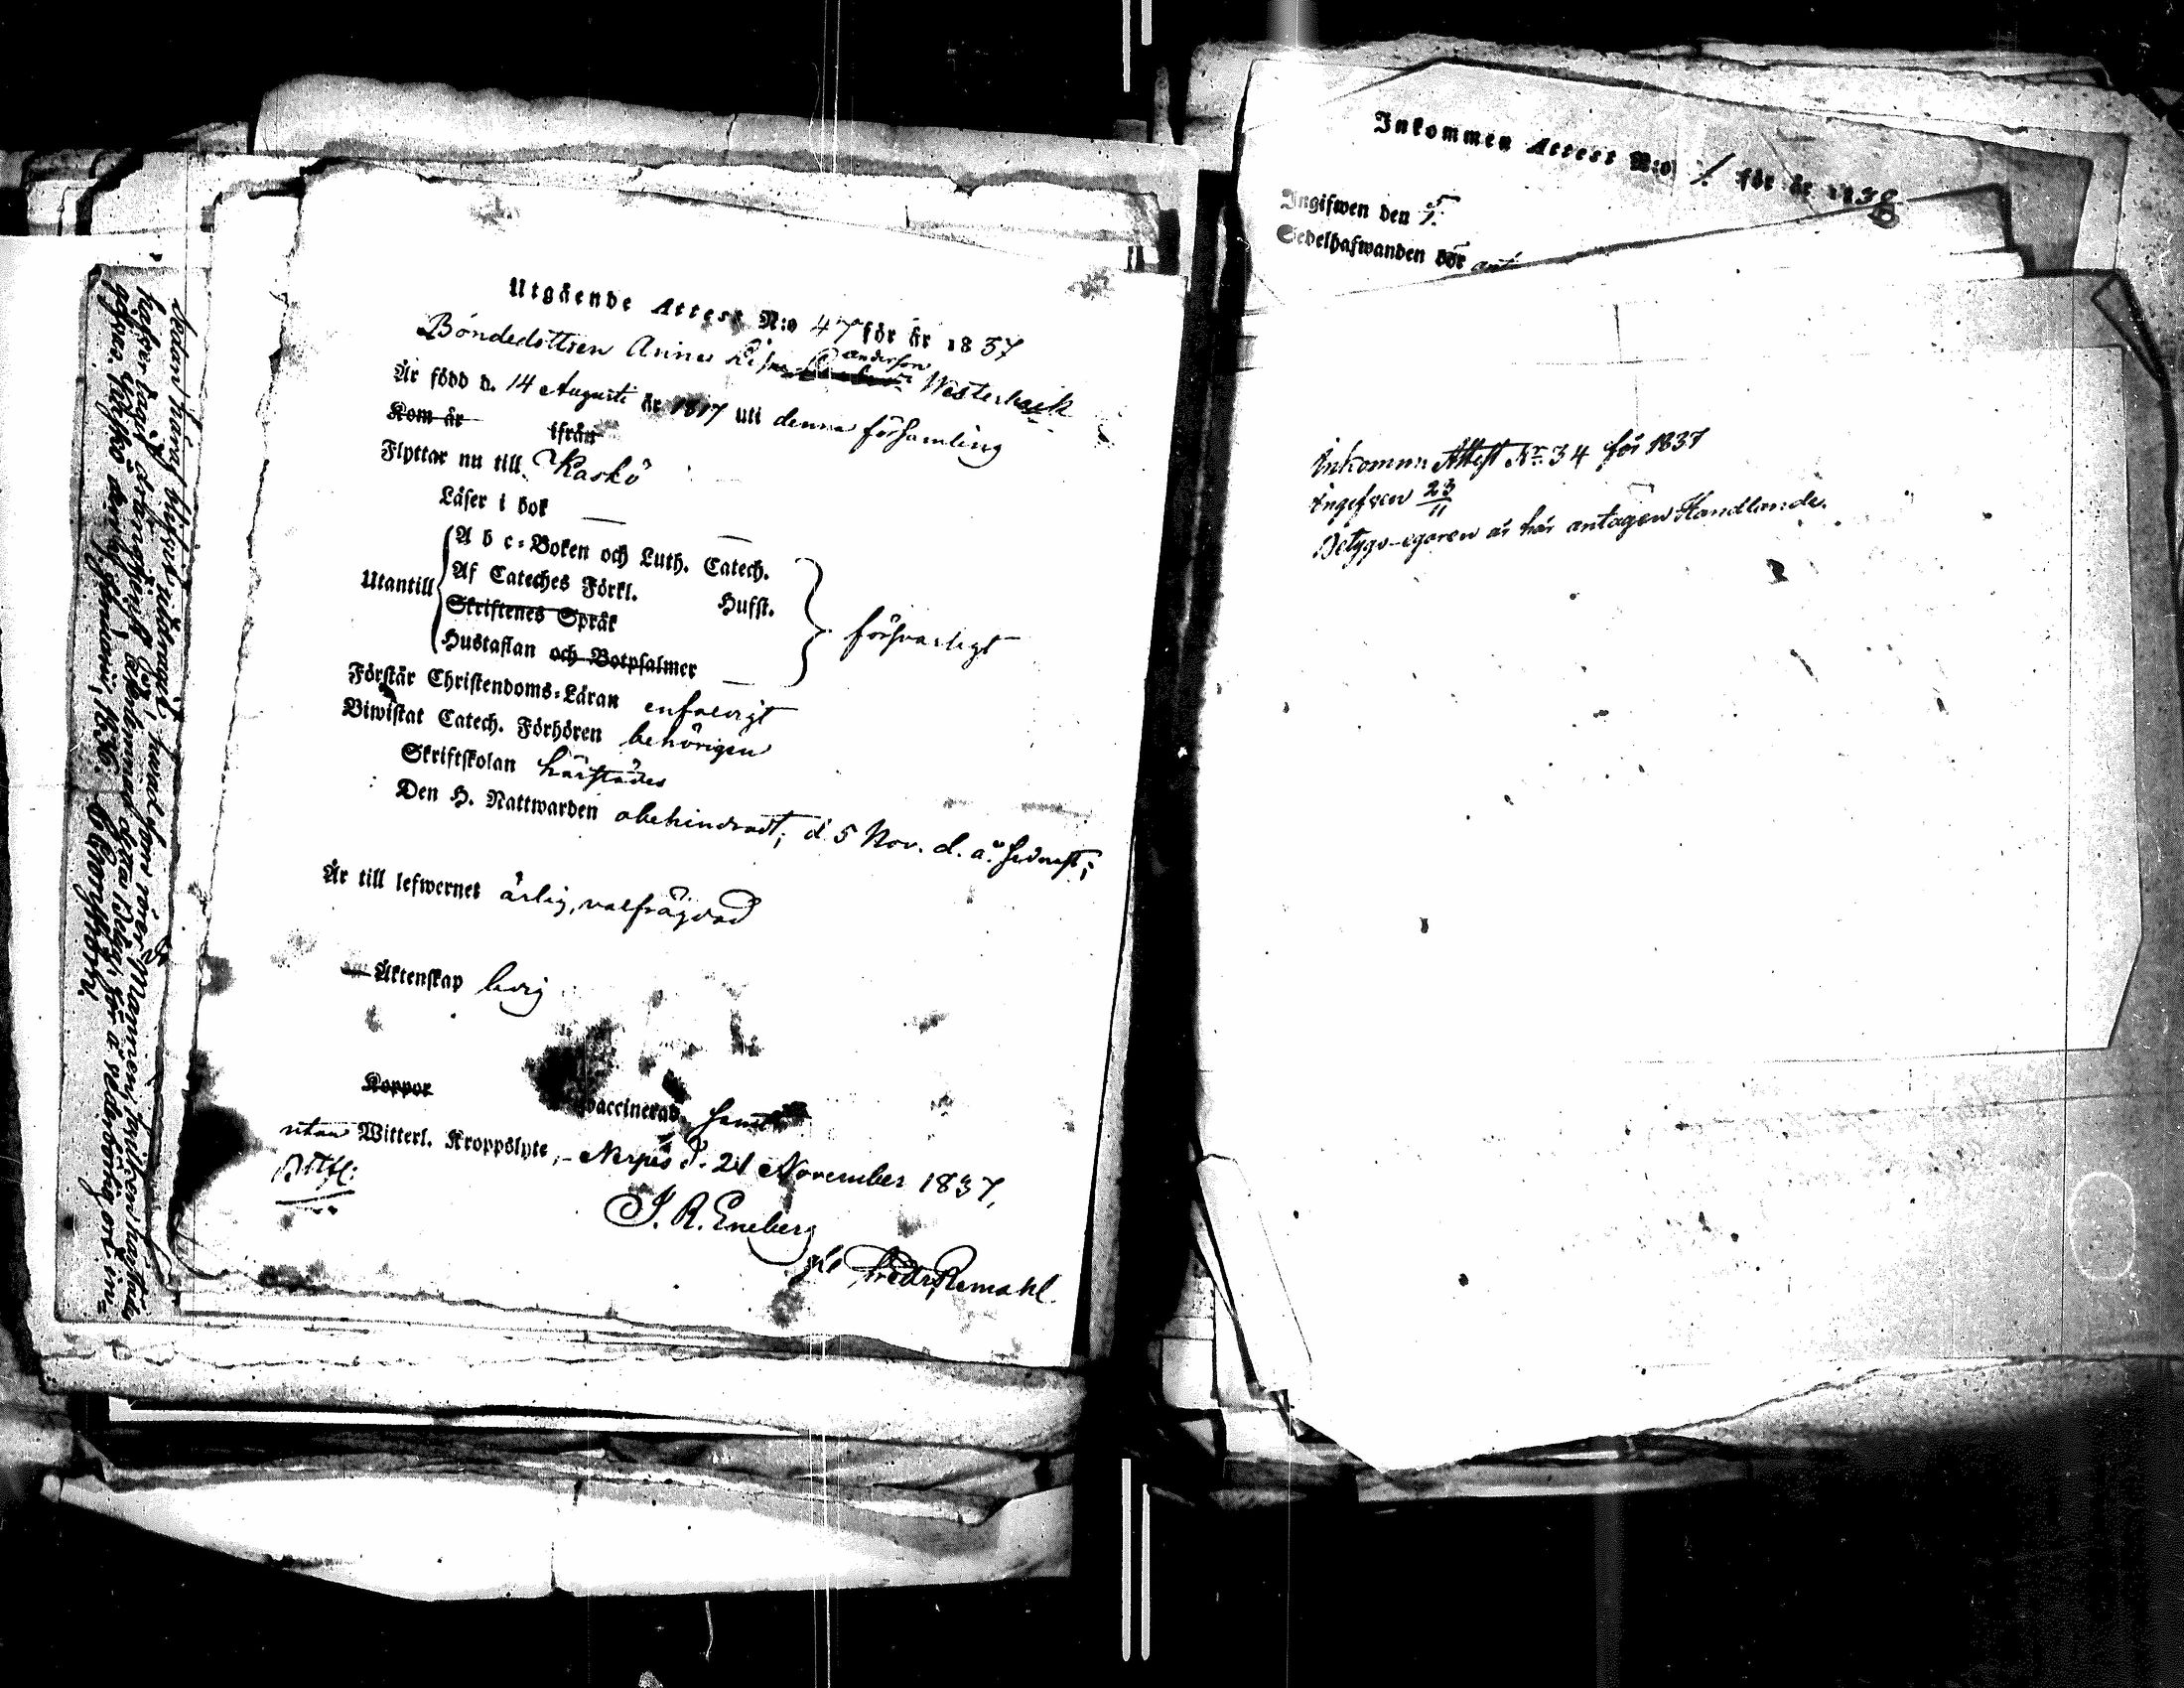 Utgående Attest N:o 47 för år 1837
Bondedottren Anna Lisa anderson Westerback
Är född d. 14 Augusti år 1817 uti denna församling
Kom år ifrån
Flyttar nu till Kaskö
Läser i bok —
Utantill
A b c-Boken och Luth. Catech.
Af Cateches Förkl. Husst.
Skriftenes Språk
Hustaflan och Botpsalmer
försvarligt
Förstår Christendoms-Läran enfaldigt
Biwistat Catech. Förhören behörigen
Skriftskolan härstädes
Den H. Nattwarden obehindradt; d 5 Nov. d. å. sednast;
Är till lefwernet ärlig, välfrägdad
Äktenskap ledig
Koppor vaccinerad samt
utan Witterl. Kroppslyte, Nerpes d. 21 November 1837,
Attst:
J. R. Eneberg
Fredr Remahl
Sedan häraf blifvit utdraget, hvad som rörer Mannen, hvilken härstädes
Januarii, 1836.
Inkommen Attest N:o 1. för år 1838
Ingifwen den
Sedelhafwanden bör
Inkommen Attest No 34 för 1837
Ingifven 23/11
Betygs-egaren är här antagen Handlande.